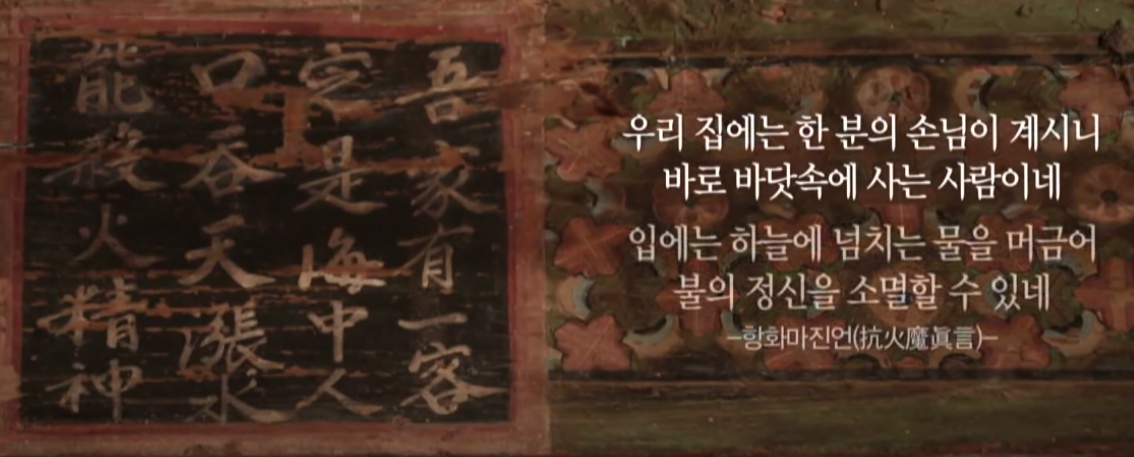 吾家有一客
定是海中人
口吞天漲水
能殺火精神
우리 집에는 한 분의 손님이 계시니
바로 바닷속에 사는 사람이네
입에는 하늘에 넘치는 물을 머금어
불의 정신을 소멸할 수 있네
–항화마진언(抗火魔眞言)–